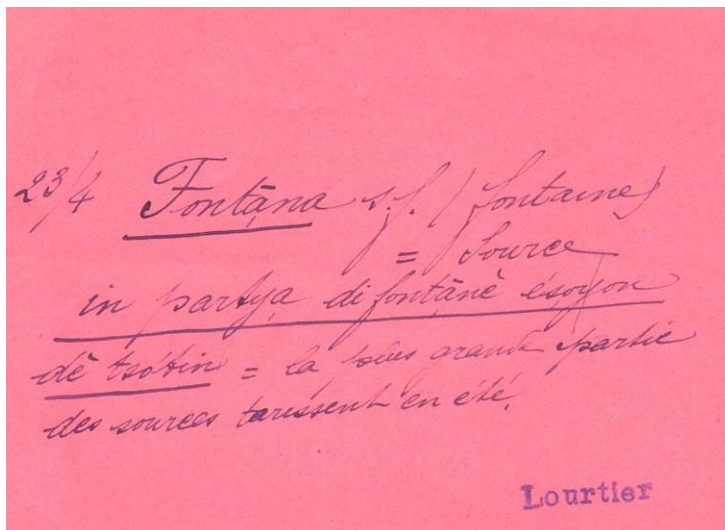 23/4 Fontạ̄na s.f. (fontaine)
= Source
in partyạ di fontānè ésọyon
dè tsọ́tin = la plus grande partie
des sources tarissent en été.
Lourtier